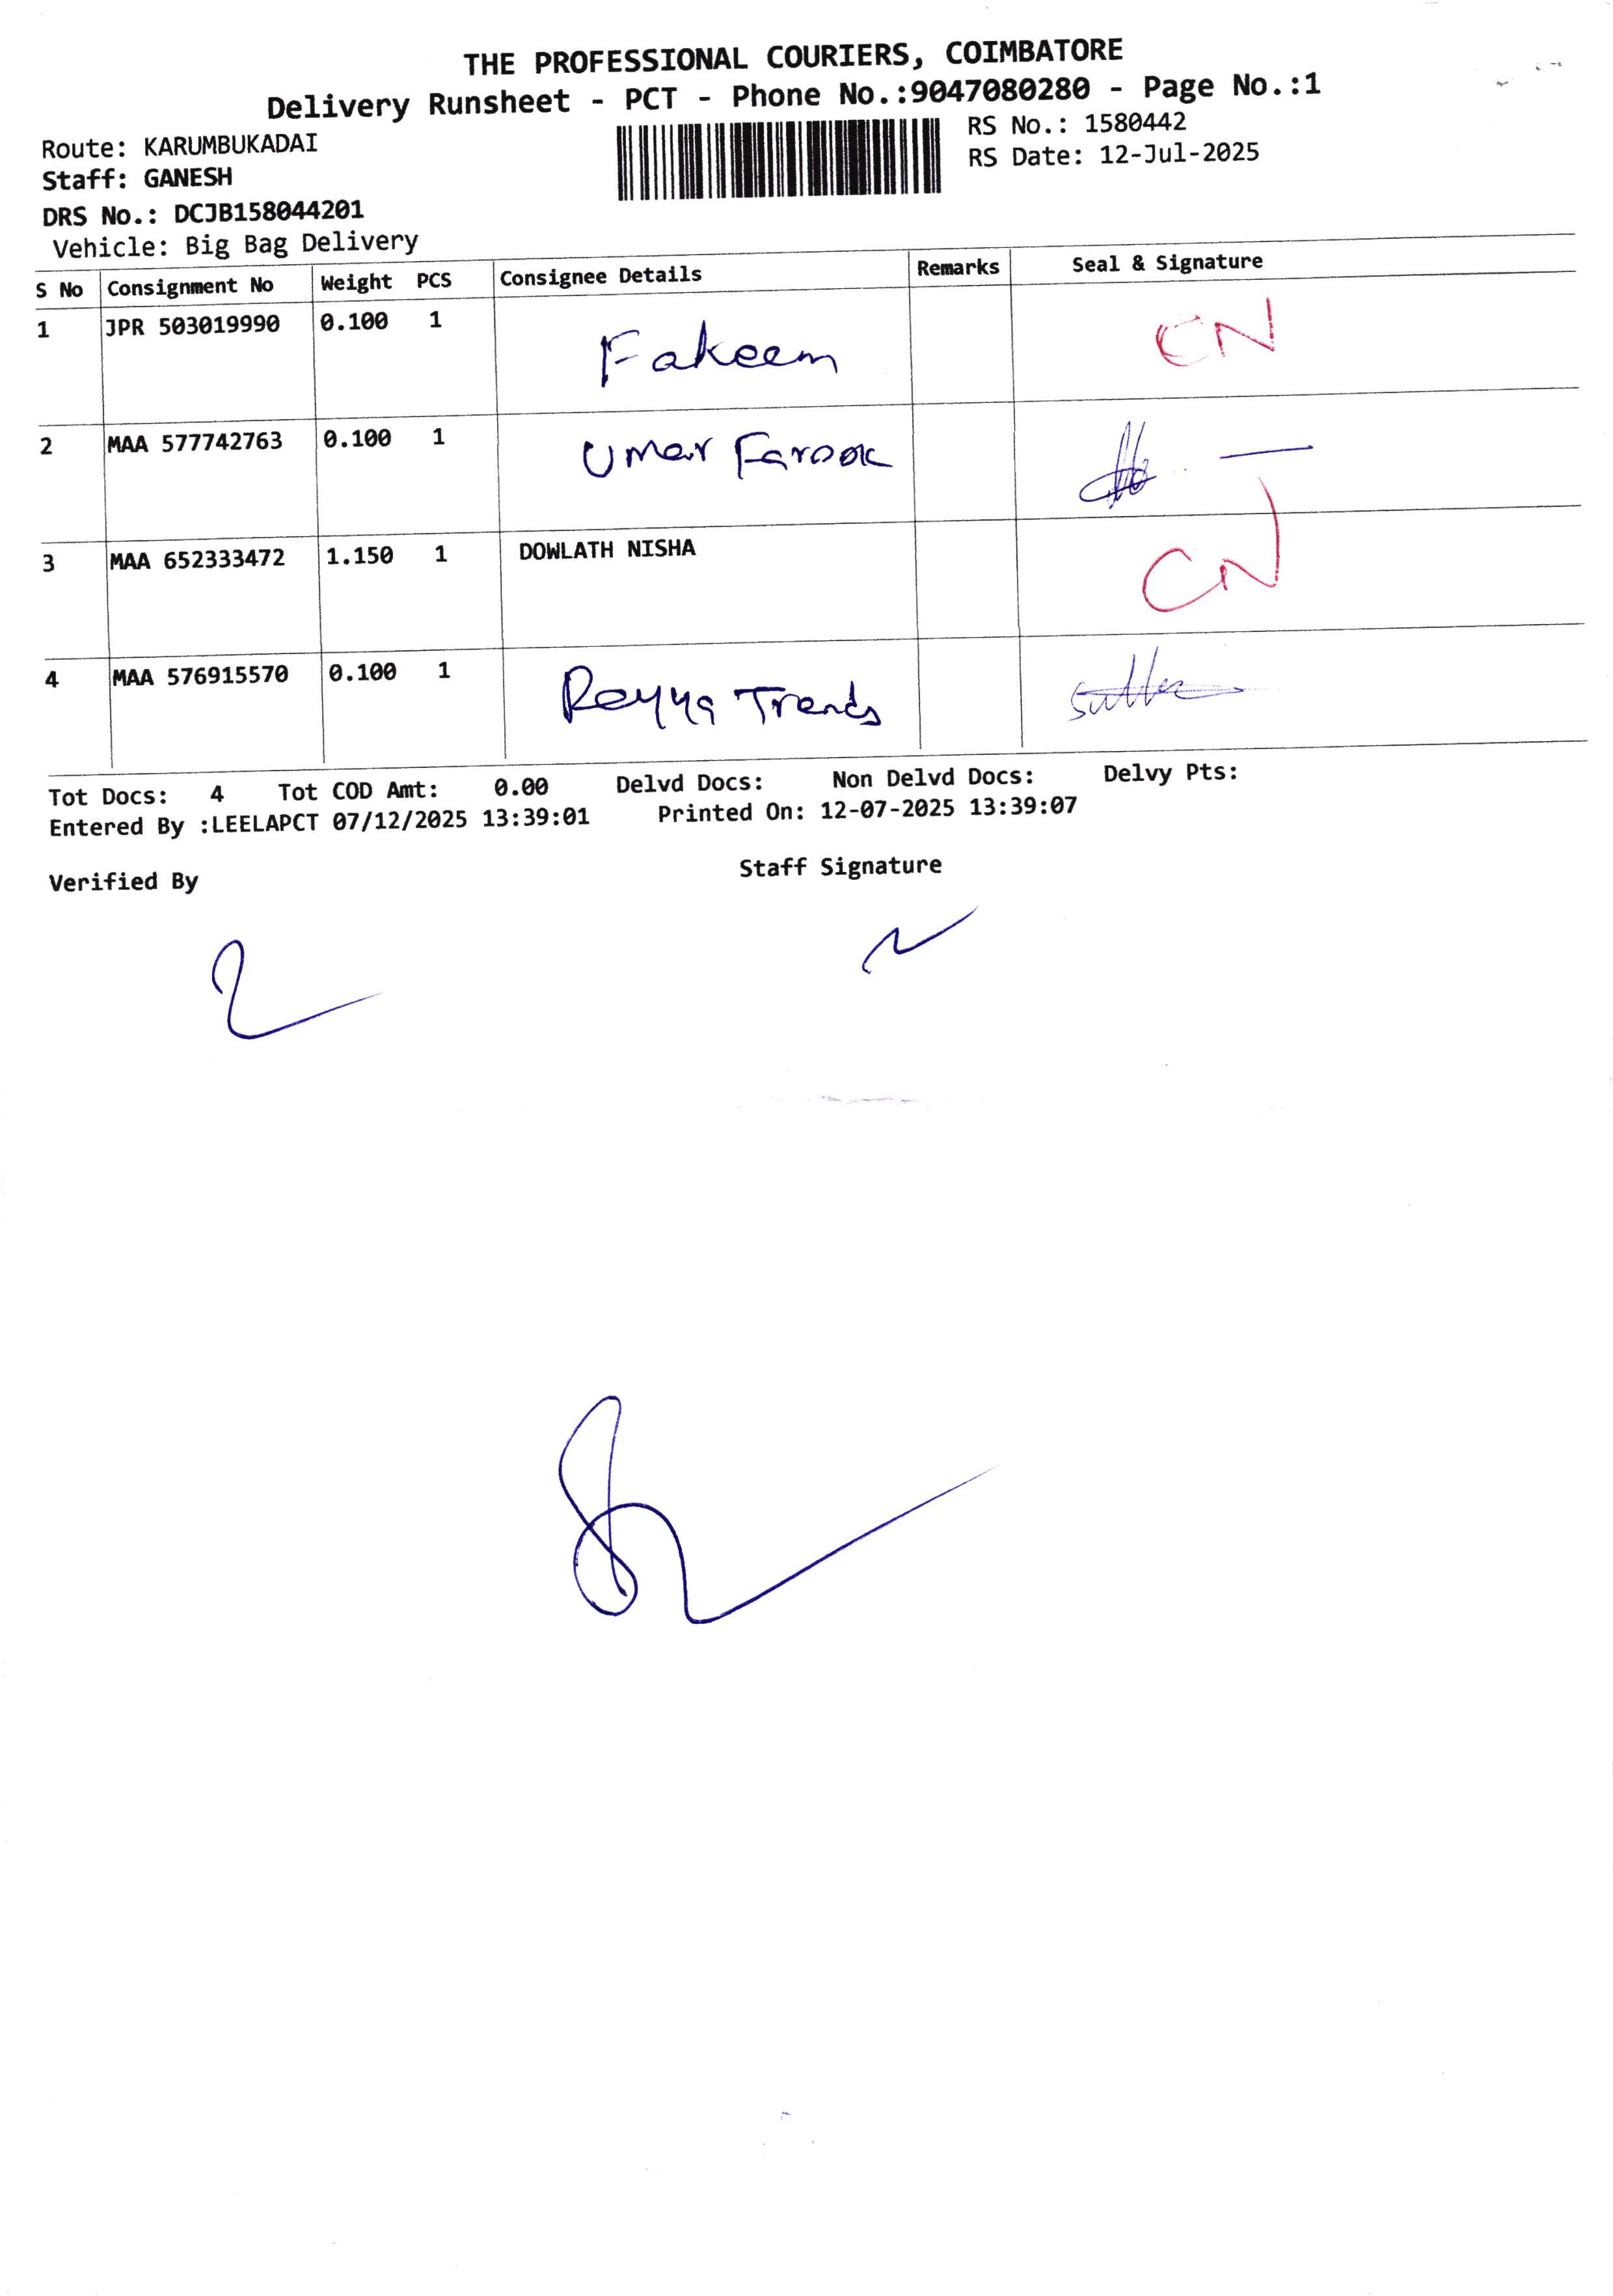 THE PROFESSIONAL COURIERS, COIMBATORE
Delivery Runsheet - PCT - Phone No.:9047080280 - Page No.:1
Route: KARUMBUKADAI
RS No.: 1580442
Staff: GANESH
RS Date: 12-Jul-2025
DRS No.: DCJB158044201
Vehicle: Big Bag Delivery
S No Consignment No Weight PCS Consignee Details Remarks Seal & Signature
1 JPR 503019990 0.100 1 Fakeem CN
2 MAA 577742763 0.100 1 Umar Farook
3 MAA 652333472 1.150 1 DOWLATH NISHA CN
4 MAA 576915570 0.100 1 Reyya Trends
Tot Docs: 4 Tot COD Amt: 0.00 Delvd Docs: Non Delvd Docs: Delvy Pts:
Entered By :LEELAPCT 07/12/2025 13:39:01 Printed On: 12-07-2025 13:39:07
Verified By Staff Signature